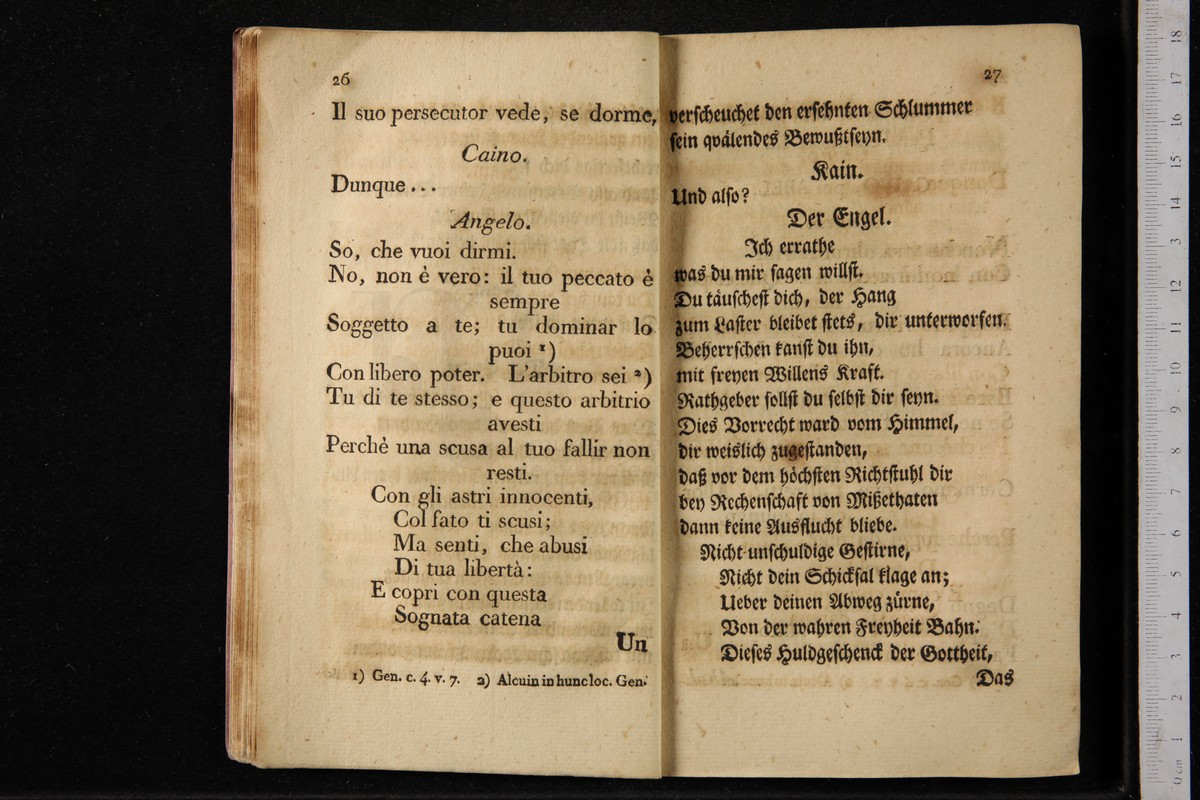 26
Il suo persecutor vede, se dorme,
Caino.
Dunque...
Angelo.
So, che vuoi dirmi.
No, non è vero: il tuo peccato è
sempre
Soggetto a te; tu dominar lo
puoi ¹)
Con libero poter. L'arbitro sei ²)
Tu di te stesso; e questo arbitrio
avesti
Perchè una scusa al tuo fallir non
resti.
Con gli astri innocenti,
Col fato ti scusi;
Ma senti, che abusi
Di tua libertà:
E copri con questa
Sognata catena
Un
1) Gen. c. 4. v. 7. 2) Alcuin in hunc loc. Gen.
27
verscheuchet den ersehnten Schlummer
sein quälendes Bewußtseyn.
Kain.
Und also?
Der Engel.
Ich errathe
was du mir sagen willst.
Du täuschest dich, der Hang
zum Laster bleibet stets, dir unterworfen.
Beherrschen kanst du ihn,
mit freyen Willens Kraft.
Rathgeber sollst du selbst dir seyn.
Dies Vorrecht ward vom Himmel,
dir weislich zugestanden,
daß vor dem höchsten Richtstuhl dir
bey Rechenschaft von Mißethaten
dann keine Ausflucht bliebe.
Nicht unschuldige Gestirne,
Nicht dein Schicksal klage an;
Ueber deinen Abweg zürne,
Von der wahren Freyheit Bahn.
Dieses Huldgeschenck der Gottheit,
Das
0 cm 1 2 3 4 5 6 7 8 9 10 11 12 13 14 15 16 17 18